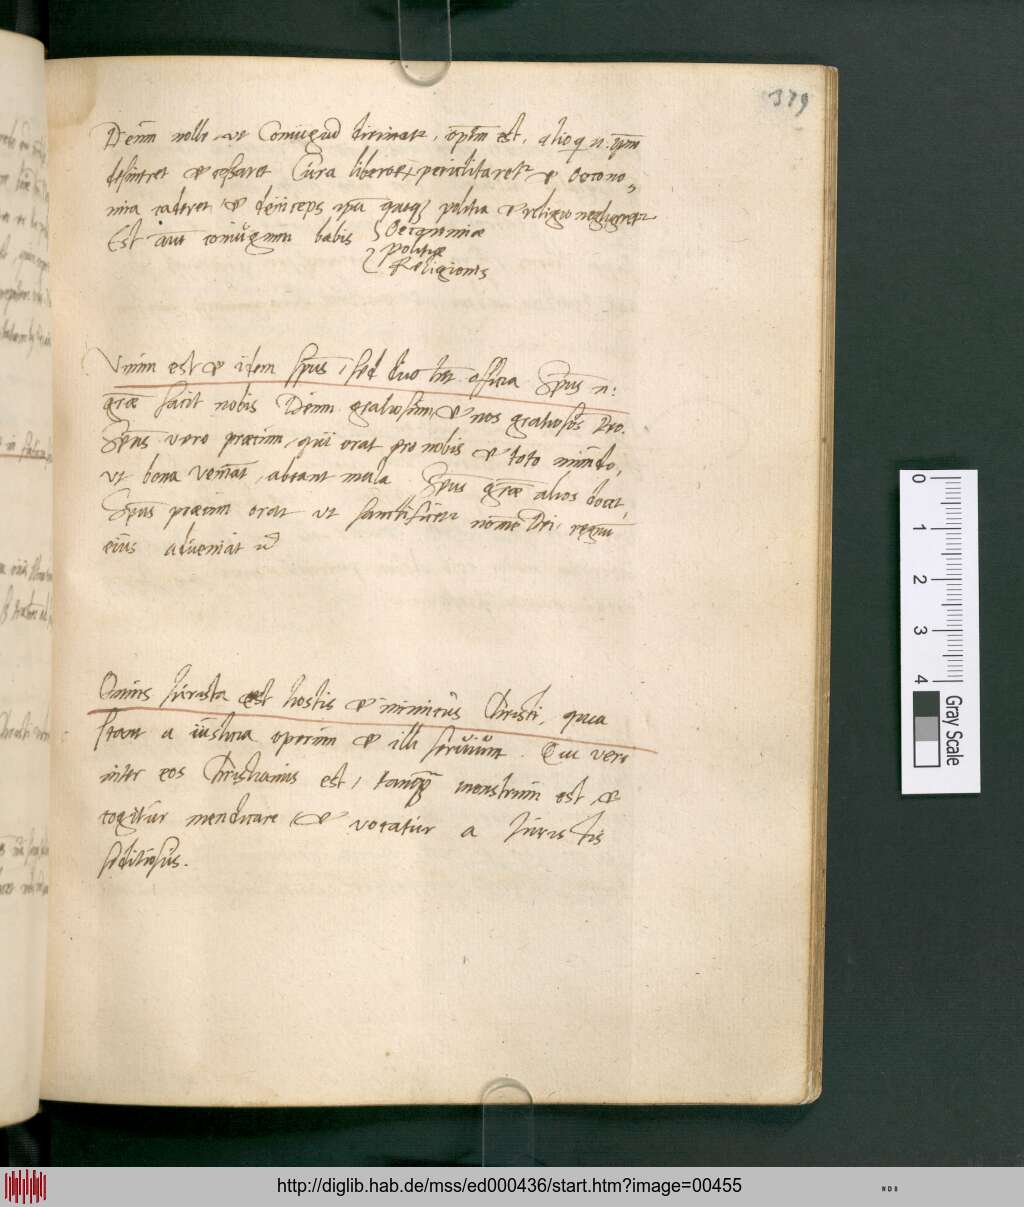 379
Deum nolle ut Coniugiũ dirimatr, optm̃ est, alioq n. qm̃
desineret et cessaret Cura liberorũ periclitaretr et Oecono-
mia caderet, et deinceps ipa quoq politia et religio negligeretr
Est aut coniugium basis Oeconomiae
Politiae
Religionis
Unum est et idem spũs, sed duo tm̃ officia Spũs n:
grãe facit nobis Deum gratiosum, et nos gratiosos Deo.
Spũs vero precum, qui orat pro nobis et toto mundo,
ut bona veniat, abeant mala. Spũs grãe alios docet,
Spũs precum orat ut sanctificetr nomẽ Dei, regnũ
eius adveniat
Omnis Iurista est hostis et inimicus Christi, quia
stant a iusticia operum et illi serviunt. Qui vero
inter eos Christianus est, tanq monstrum est, et
cogitur mendicare et vocatur a Iuristis
seditiosus.
0 1 2 3 4
Gray Scale
http://diglib.hab.de/mss/ed000436/start.htm?image=00455